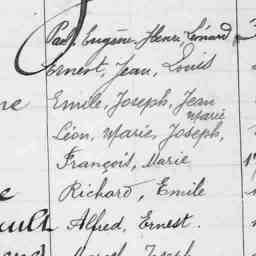 Paul, Eugène, Henri, Léonard
Ernest, Jean, Louis
Emile, Joseph, Jean
Marie
Léon, Marie, Joseph,
François, Marie
Richard, Emile
Alfred, Ernest.
Marcel, Joseph